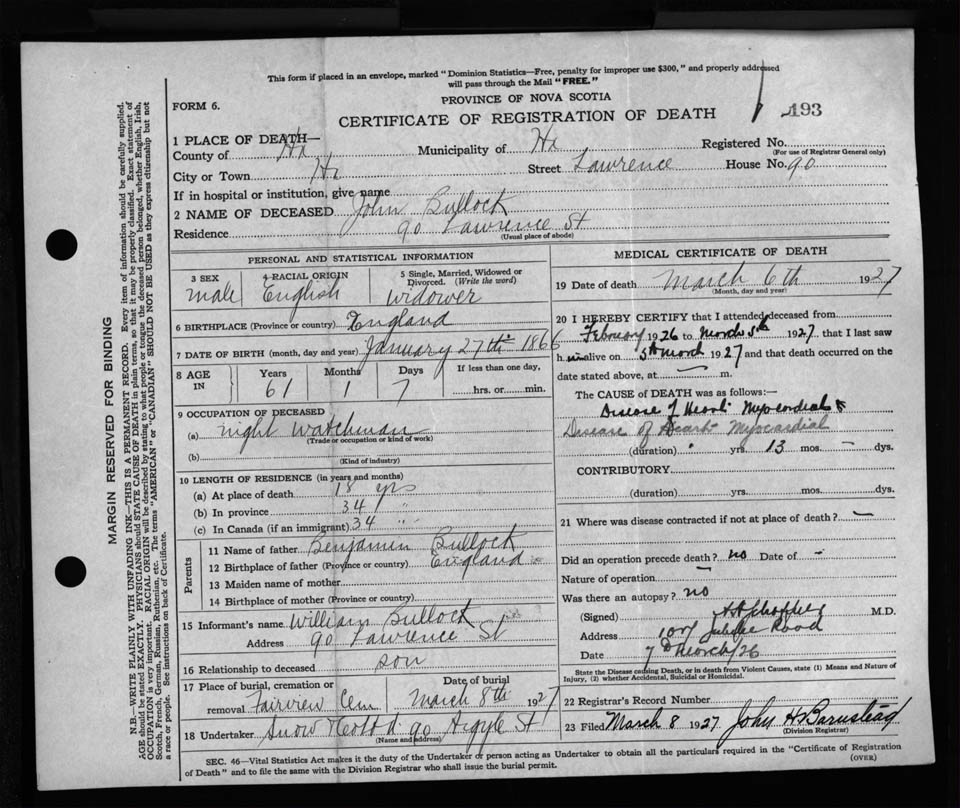 This form if placed in an envelope, marked "Dominion Statistics—Free, penalty for improper use $300," and properly addressed
will pass through the Mail "FREE."
FORM 6.
PROVINCE OF NOVA SCOTIA
CERTIFICATE OF REGISTRATION OF DEATH
193
1 PLACE OF DEATH—
County of Hx Municipality of Hx Registered No.
(For use of Registrar General only)
City or Town Hx Street Lawrence House No. 90
If in hospital or institution, give name
2 NAME OF DECEASED John Bullock
Residence 90 Lawrence St
(Usual place of abode)
PERSONAL AND STATISTICAL INFORMATION
3 SEX male
4 RACIAL ORIGIN English
5 Single, Married, Widowed or Divorced. (Write the word) Widower
6 BIRTHPLACE (Province or country) England
7 DATE OF BIRTH (month, day and year) January 27th 1866
8 AGE IN
Years Months Days If less than one day,
61 1 7 hrs. or min.
9 OCCUPATION OF DECEASED
(a) night watchman
(Trade or occupation or kind of work)
(b)
(Kind of industry)
10 LENGTH OF RESIDENCE (in years and months)
(a) At place of death 18 yrs
(b) In province 34 "
(c) In Canada (if an immigrant) 34 "
Parents
11 Name of father Benjamin Bullock
12 Birthplace of father (Province or country) England
13 Maiden name of mother
14 Birthplace of mother (Province or country)
15 Informant's name William Bullock
Address 90 Lawrence St
16 Relationship to deceased son
17 Place of burial, cremation or removal Fairview Cem
Date of burial March 8th 1927
18 Undertaker Snow & Co Ltd 90 Argyle St
(Name and address)
MEDICAL CERTIFICATE OF DEATH
19 Date of death March 6th 1927
(Month, day and year)
20 I HEREBY CERTIFY that I attended deceased from
February 1926 to March 5th 1927 that I last saw
him alive on 5th March 1927 and that death occurred on the
date stated above, at — m.
The CAUSE of DEATH was as follows:—
Disease of Heart Myocardial
Disease of Heart Myocardial
(duration) yrs. 13 mos. — dys.
CONTRIBUTORY
(duration) yrs. mos. dys.
21 Where was disease contracted if not at place of death? —
Did an operation precede death? no Date of —
Nature of operation —
Was there an autopsy? no
(Signed) M.D.
Address Jubilee Road
Date 7th March/26
State the Disease causing Death, or in death from Violent Causes, state (1) Means and Nature of
Injury, (2) whether Accidental, Suicidal or Homicidal.
22 Registrar's Record Number
23 Filed March 8 1927 John H Barnstead
(Division Registrar)
SEC. 46—Vital Statistics Act makes it the duty of the Undertaker or person acting as Undertaker to obtain all the particulars required in the "Certificate of Registration
of Death" and to file the same with the Division Registrar who shall issue the burial permit.
(OVER)
MARGIN RESERVED FOR BINDING
N.B.—WRITE PLAINLY WITH UNFADING INK—THIS IS A PERMANENT RECORD. Every item of information should be carefully supplied.
AGE should be stated EXACTLY. PHYSICIANS should STATE CAUSE OF DEATH in plain terms, so that it may be properly classified. Exact statement of
OCCUPATION is very important. RACIAL ORIGIN will be described by stating to what people or tongue the deceased person belonged, whether English, Irish,
Scotch, French, German, Russian, Ruthenian, etc. The terms "AMERICAN" or "CANADIAN" SHOULD NOT BE USED as they express citizenship but not
a race or people. See instructions on back of Certificate.